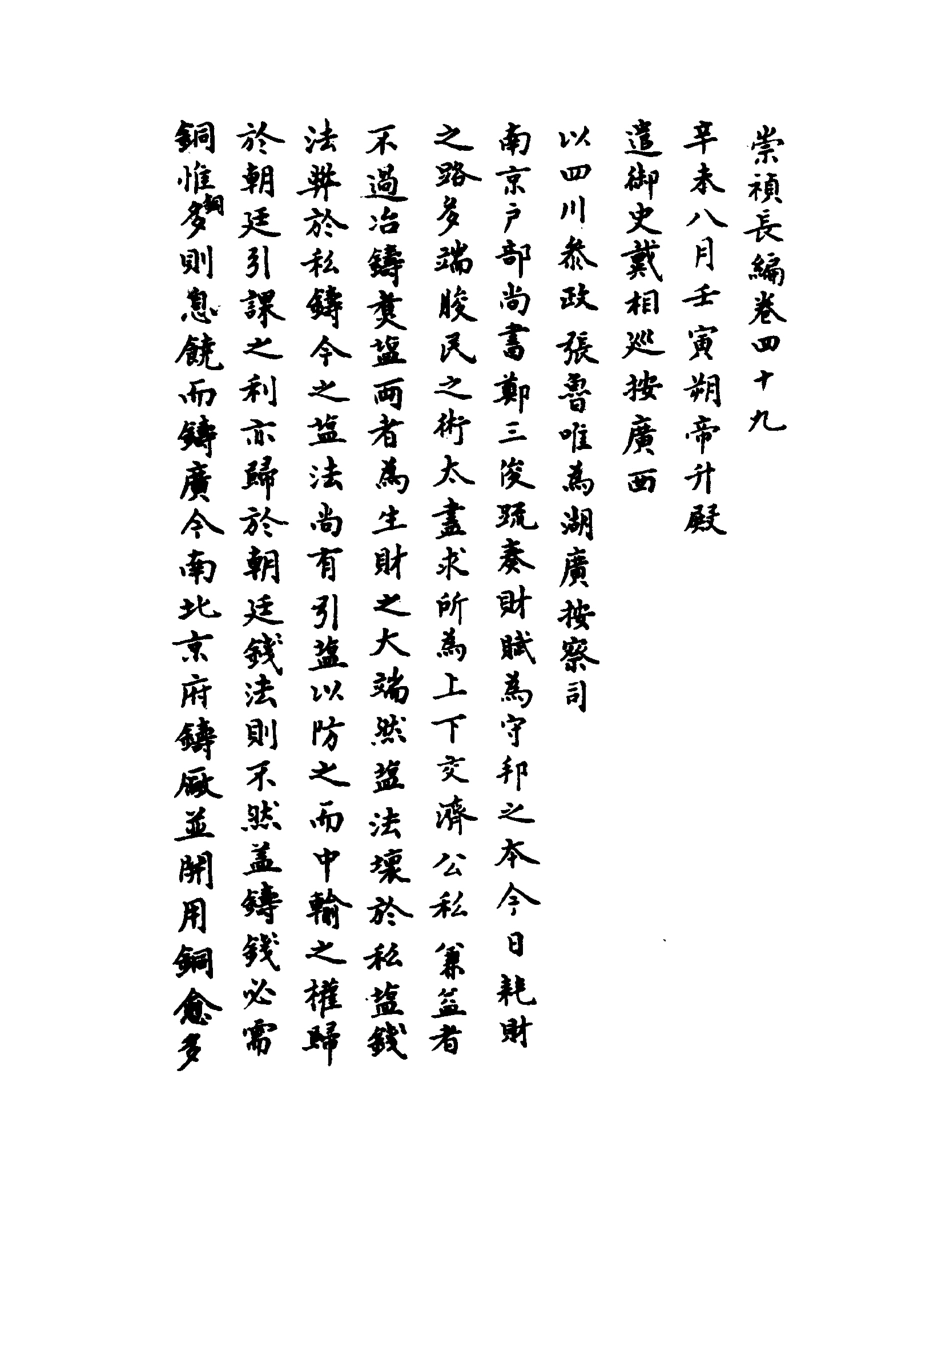 崇禎長編卷四十九
辛未八月壬寅朔帝升殿
遣御史戴相巡按廣西
以四川叅政張魯唯為湖廣按察司
南京戶部尚書鄭三俊疏奏財賦為守邦之本今日耗財
之路多端朘民之術太盡求所為上下交濟公私兼益者
不過冶鑄煑塩兩者為生財之大端然塩法壞於私塩錢
法弊於私鑄今之塩法尚有引塩以防之而中輸之權歸
於朝廷引課之利亦歸於朝廷錢法則不然盖鑄錢必需
銅惟銅多則息饒而鑄廣今南北京府鑄廠並開用銅愈多